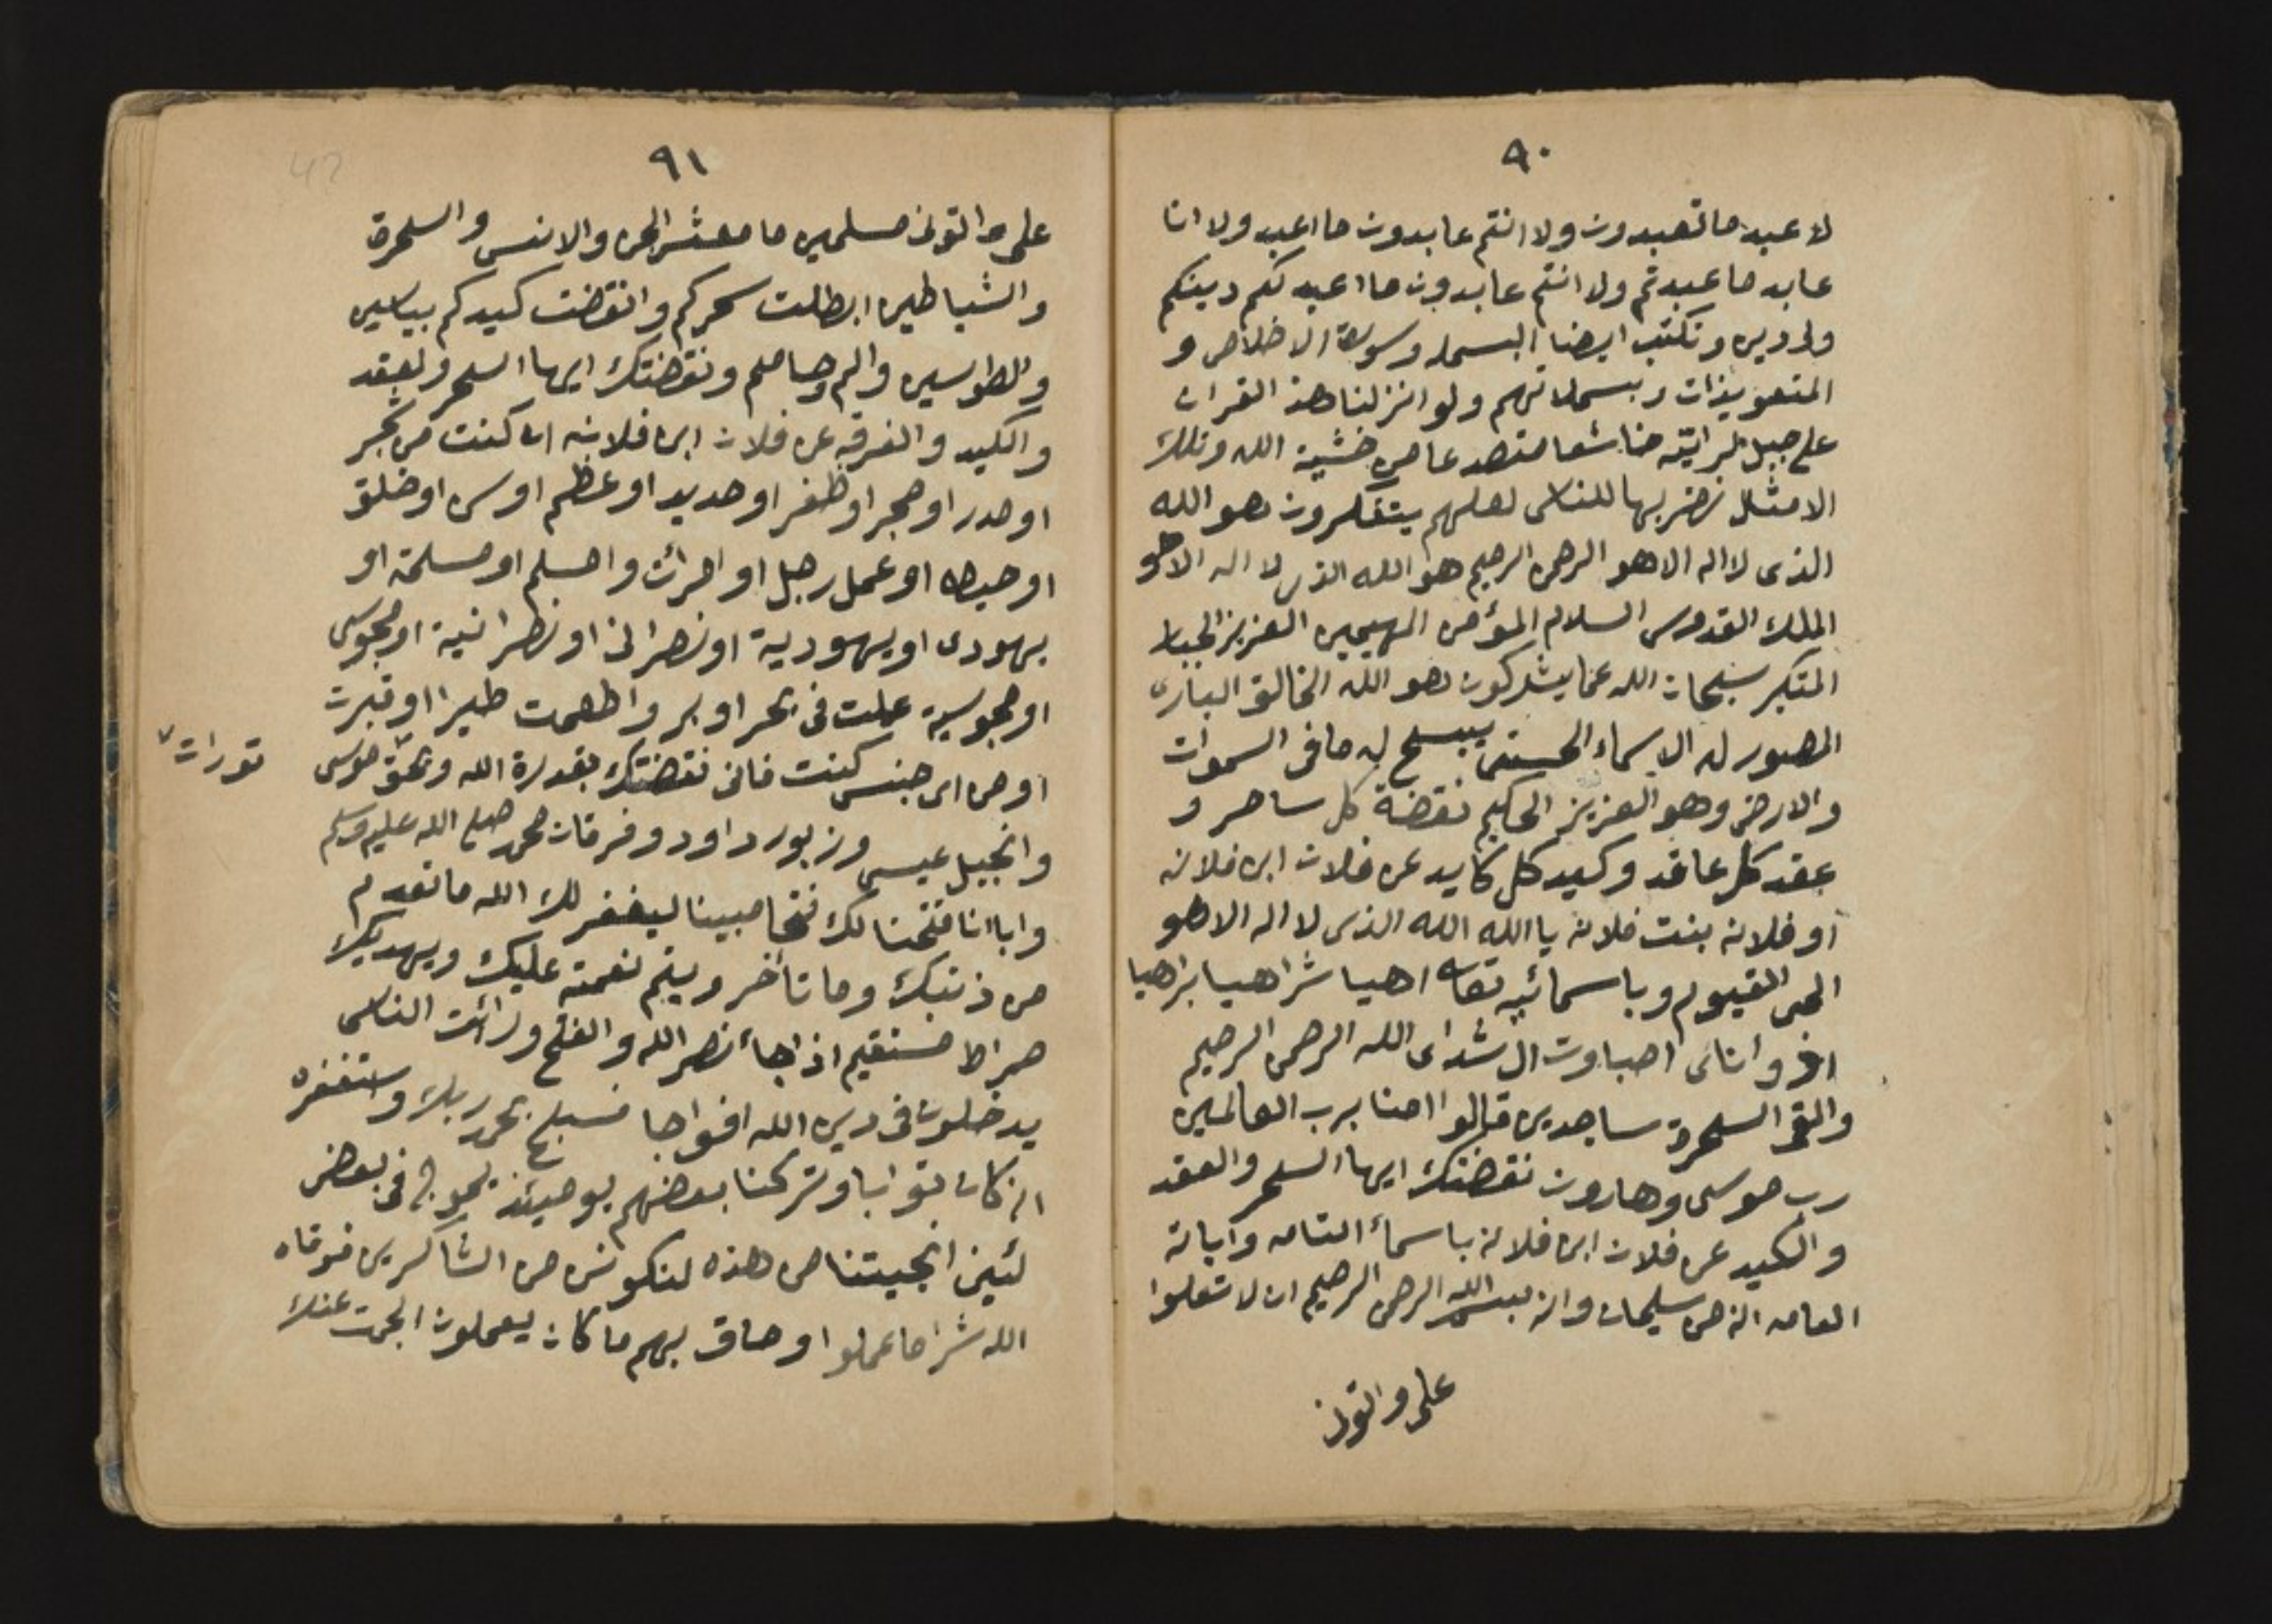 ٩٠
لا عبد ما تعبدون ولا انتم عابدون ما اعبد ولا انا
عابد ما عبدتم ولا انتم عابدون ما اعبد لكم دينكم
ولى دين وتكتب ايضا البسمله وسورة الاخلاص و
المتعويذات وبسملاتهم ولو انزلنا هذ القران
على جبل لرايته خاشعا متصدعا من خشية الله وتلك
الامثال نضربها للناس لعلهم يتفكرون هو الله
الذى لا اله الا هو الرحمن الرحيم هو الله الذى لا اله الا هو
الملك القدوس السلام المؤمن المهيمين العزيز الجبار
المتكبر سبحان الله عما يشركون هو الله الخالق البارى
المصور له الاسماء الحسنى يسبح له ما فى السموات
والارض وهو العزيز الحكيم نقضة كل ساحر و
عقد كل عاقد وكيد كل كايد عن فلان ابن فلانه
او فلانه بنت فلانه يا الله الله الذى لا اله الا هو
الحى القيوم وباسمائه اهيا شراهيا براهيا
ادوناى اصباوت ال شداى الله الرحمن الرحيم
والقى السحرة ساجدين قالوا امنا برب العالمين
رب موسى وهارون نقضتك ايها السحر والعقد
والكيد عن فلان ابن فلانة باسماء التامه واياته
العامه انه من سليمان وانه بسم الله الرحمن الرحيم ان لا تعلوا
على واتونى
٩١
على واتونى مسلمين ما معشر الجن والانس والسحرة
والشياطين ابطلت سحركم وانقضت كيدكم بياسين
وبطواسين والم وحاميم ونقضتك ايها السحر والعقد
والكيد والفرقه عن فلان ابن فلانه ان كنت من شجر
او مدر او حجر او ظفر او حديد او عظم او سن او خلق
او خيط او عمل رجل او امرأت وامسلم او مسلمة او
يهودى او يهودية او نصرانى او نصرانية او مجوسى
او مجوسية عملت فى بحر او بر واطعمت طيرا او قبرت
او من اى جنس كنت فانى نقضتك بقدرة الله وبحق ٧ موسى
تورات ٧
وانجيل عيسى وزبور داود وفرقان محمد صلى الله عليه وسلم
وابا انا فتحنا لك فتحا مبينا ليغفر لك الله ما تقدم
من ذنبك وما تأخر ويتم نعمته عليك ويهديك
صراط مستقيم اذا جاء نصر الله والفتح ورأئت الناس
يدخلون فى دين الله افواجا فسبح بحمد ربك واستغفره
انه كان توابا وتركنا بعضهم يومئذ يموج فى بعض
لئين انجيتنا من هذه لنكونن من الشاكرين فوقاه
الله شرا ما عملوا وحاق بهم ما كان يعملون الجمت عنك